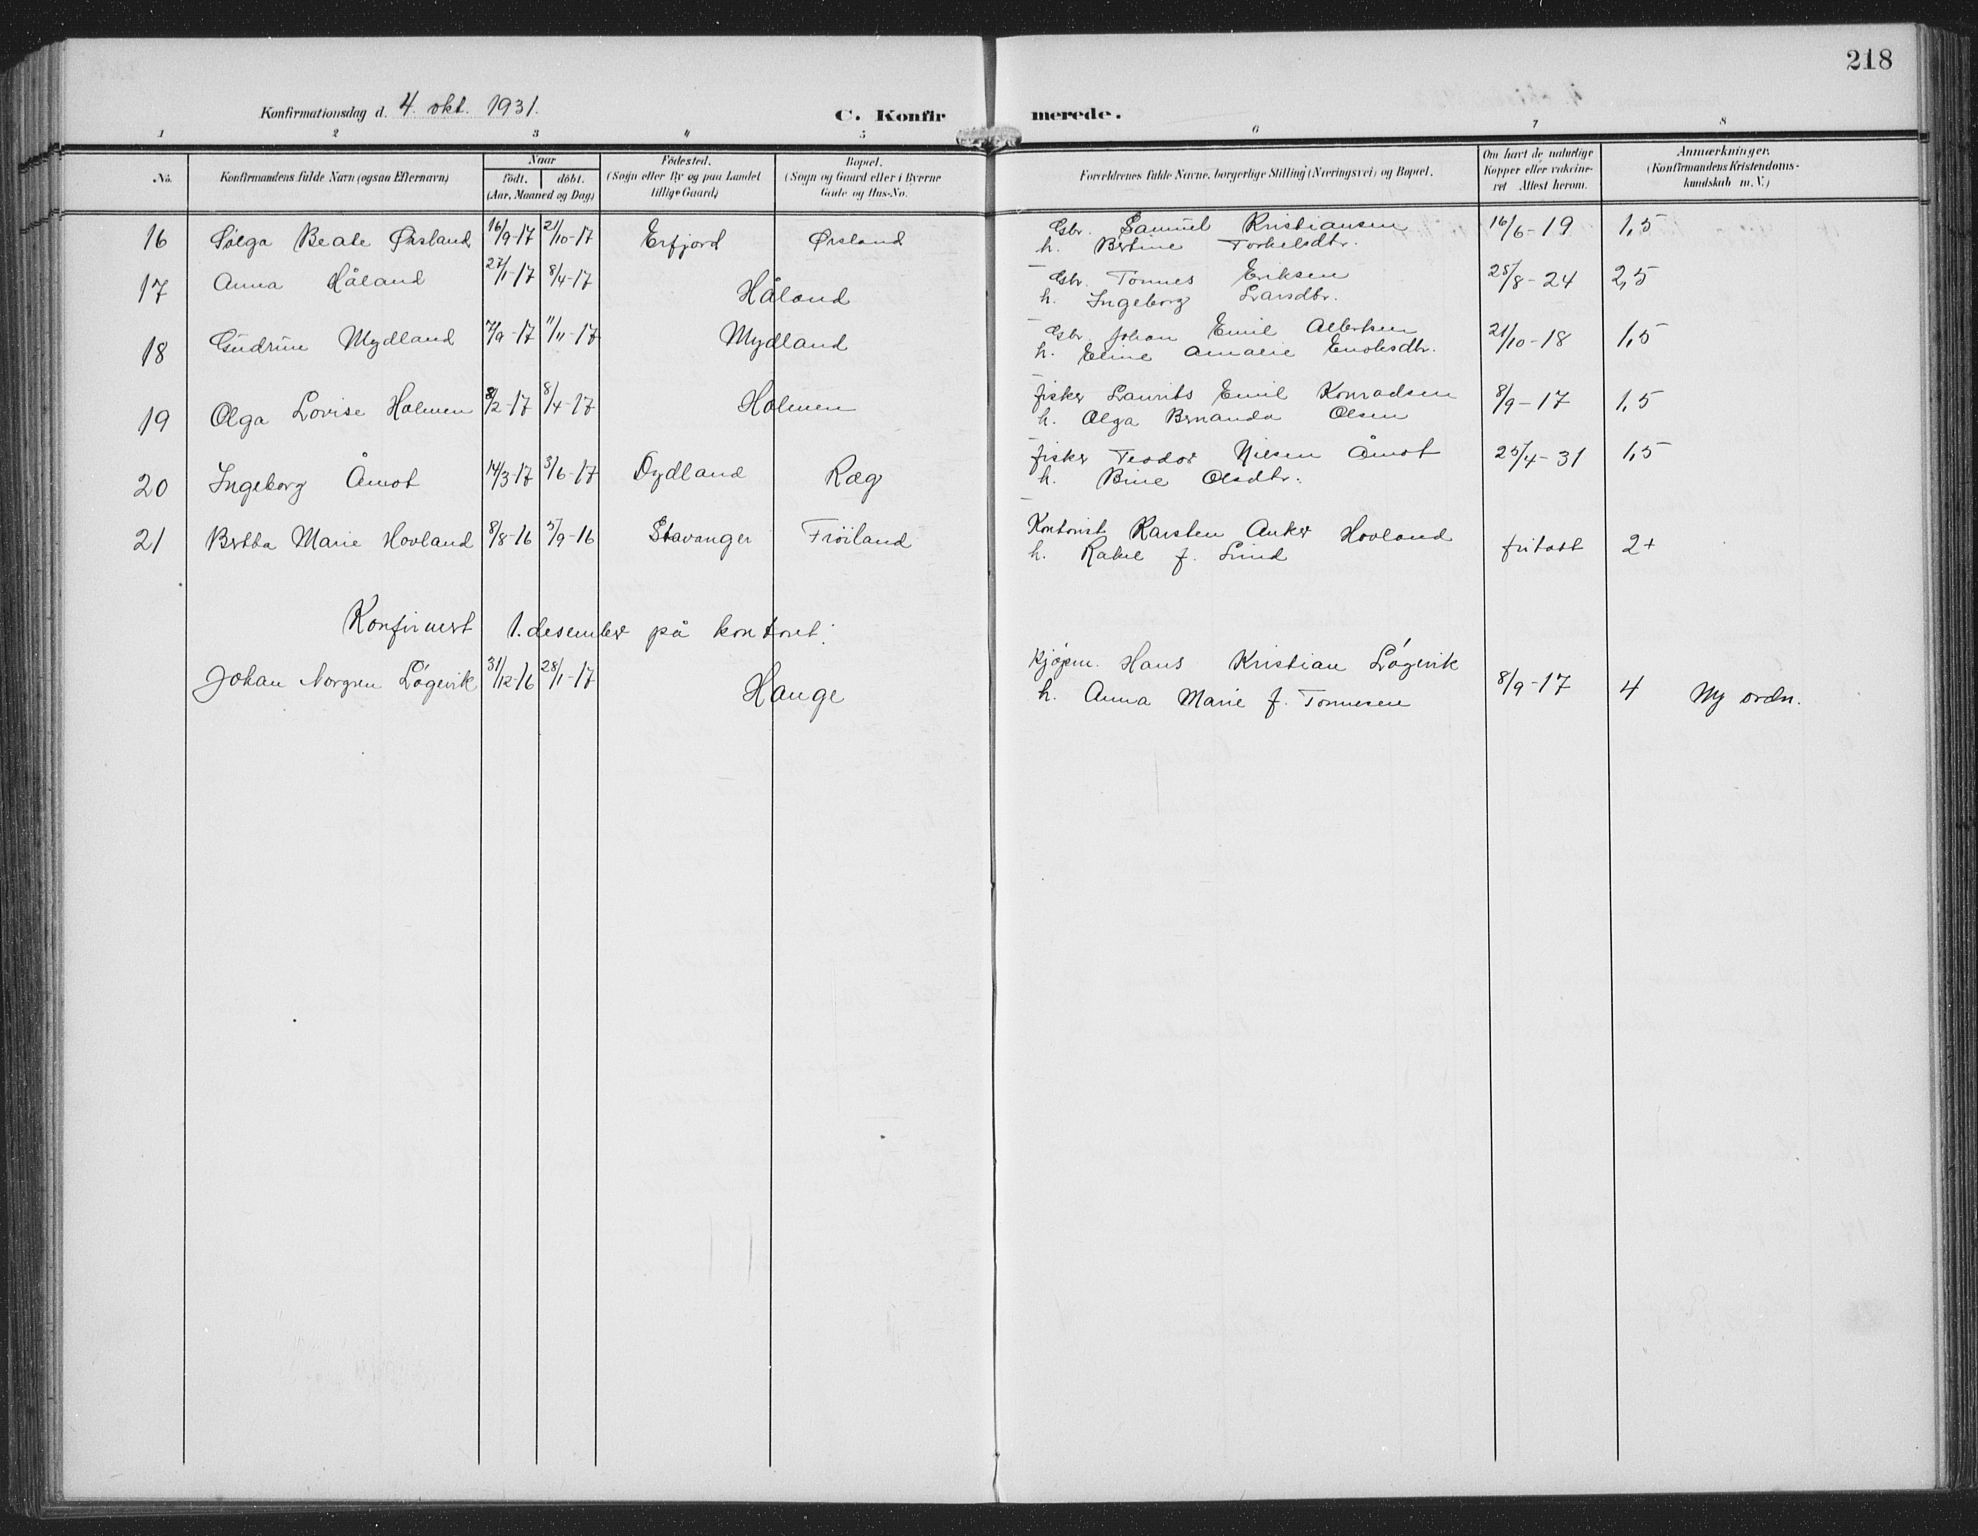 218
Konfirmationsdag d. 4. okt. 1931.
C. Konfirmerede.
1 2 3 4 5 6 7 8
No.
Konfirmandens fulde Navn (ogsaa Efternavn)
Naar
födt. döbt.
(Aar, Maaned og Dag)
Födested.
(Sogn eller By og paa Landet
tillige Gaard)
Bopæl.
(Sogn og Gaard eller i Byerne
Gade og Hus-No.
Forældrenes fulde Navne, borgerlige Stilling (Næringsvei) og Bopæl.
Om havt de naturlige
Kopper eller vakcine-
ret Attest herom.
Anmærkninger.
(Konfirmandens Kristendoms-
kundskab m. V.)
16 Beate Ørsland 16/9-17 21/10-17 Erfjord Ørsland Gbr. Samuel Kristiansen 16/6-19 1,5
h. Bertine Torkelsdtr.
17 Anna Håland 27/1-17 8/4-17 Håland Gbr. Tonnes Eriksen 28/8-24 2,5
h. Ingeborg Larsdtr.
18 Gudrun Mydland 7/9-17 11/11-17 Mydland Gbr. Johan Emil Albertsen 21/10-18 1,5
h. Eline Amalie Enoksdtr.
19 Olga Lovise Holmen 8/2-17 8/4-17 Holmen fisker Laurits Emil Konradsen 8/9-17 1,5
h. Olga Bernanda Olsen
20 Ingeborg Åmot 14/3-17 3/6-17 Dydland Ræg fisker Teodor Nilsen Åmot 25/4-31 1,5
h. Bine Olsdtr.
21 Bertha Marie Hovland 8/8-16 5/9-16 Stavanger Frøiland Kontorist Karsten Anker Hovland fritatt 2+
h. Rakel f. Lund
Konfirmert 1. desember på kontoret:
Johan Norgren Løgevik 31/12-16 28/1-17 Hauge Kjøpm. Hans Kristian Løgevik 8/9-17 4 Ny ordn.
h. Anna Marie f. Tonnesen